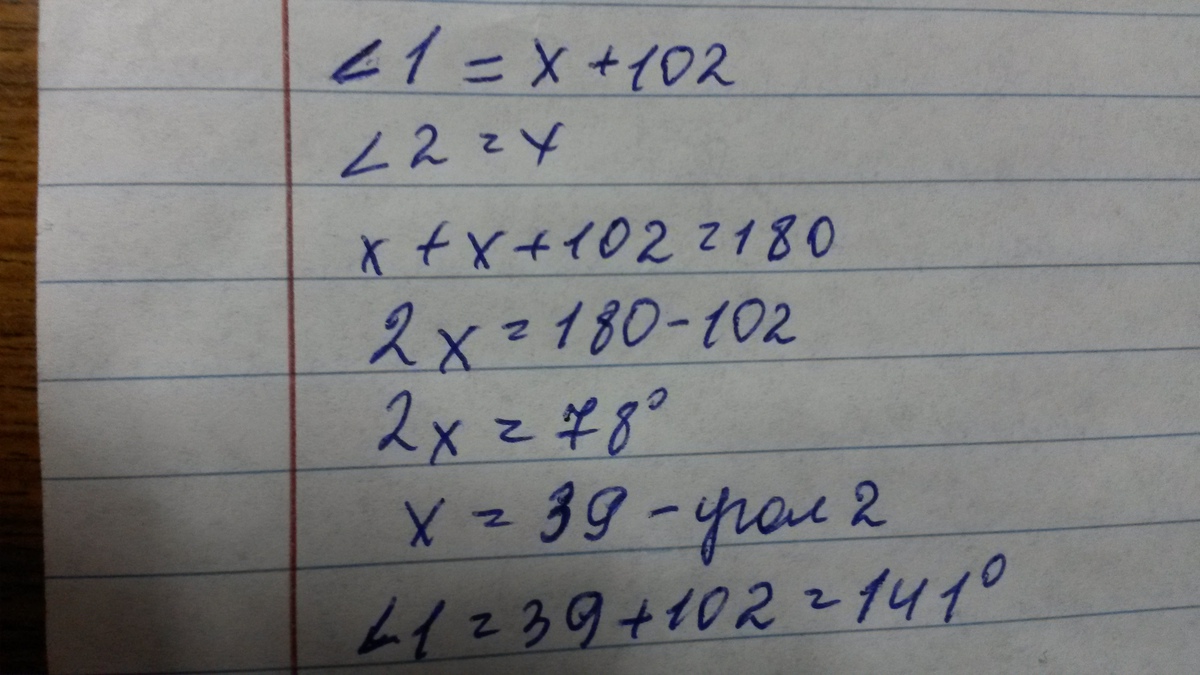 ∠1 = x + 102
∠2 = x
x + x + 102 = 180
2x = 180 - 102
2x = 78°
x = 39 - угол 2
∠1 = 39 + 102 = 141°